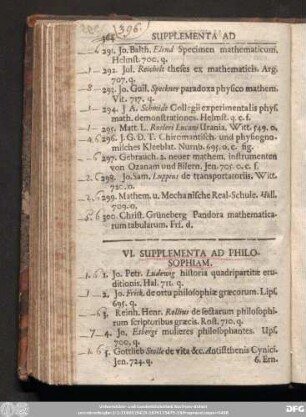 396.
364 SUPPLEMENTA AD
291. Jo. Balth. Elend Specimen mathematicum.
Helmst. 700. q.
292. Jul. Reichelt theses ex mathematicis. Arg.
707. q.
293. Jo. Guil. paradoxa physico mathem.
Vit. 717. q.
294. J A. Schmidt Collegii experimentalis phys.
math. demonstrationes. Helmst. q. c. f.
295. Matt. L. Lucani Urania. Witt. 549. 0.
296. J. G. D. T. Chiromantisch. und physiogno-
misches Kleeblat. Nurnb. 695. 0. c. fig.
297. Gebrauch. 2. neuer mathem. Instrumenten
von Ozanam und Bilern. Jen. 705. 0. c. f.
298. Jo. Sam. Luppius de transportatoriis. Witt.
720. 0.
299. Mathem. u. Mechanische Real-Schule. Hall.
709. 0.
300. Christ. Grüneberg Pandora mathematica-
rum tabularum. Frf. d.
VI. SUPPLEMENTA AD PHILO-
SOPHIAM.
1. Jo. Petr. Ludewig historia quadripartitæ eru-
ditionis. Hal. 711. q.
2. Jo. Frick. de ortu philosophiæ græcorum. Lips.
695. q.
3. Reinh. Henr. Rollius de sectarum philosophi-
rum scriptoribus græcis. Rost. 710. q.
4. Jo. Esbergi mulieres philosophantes. Ups.
700. q.
5. Gottlieb Stolle de vita &c. Antisthenis Cynici.
Jen. 724. q.
6. Ern.